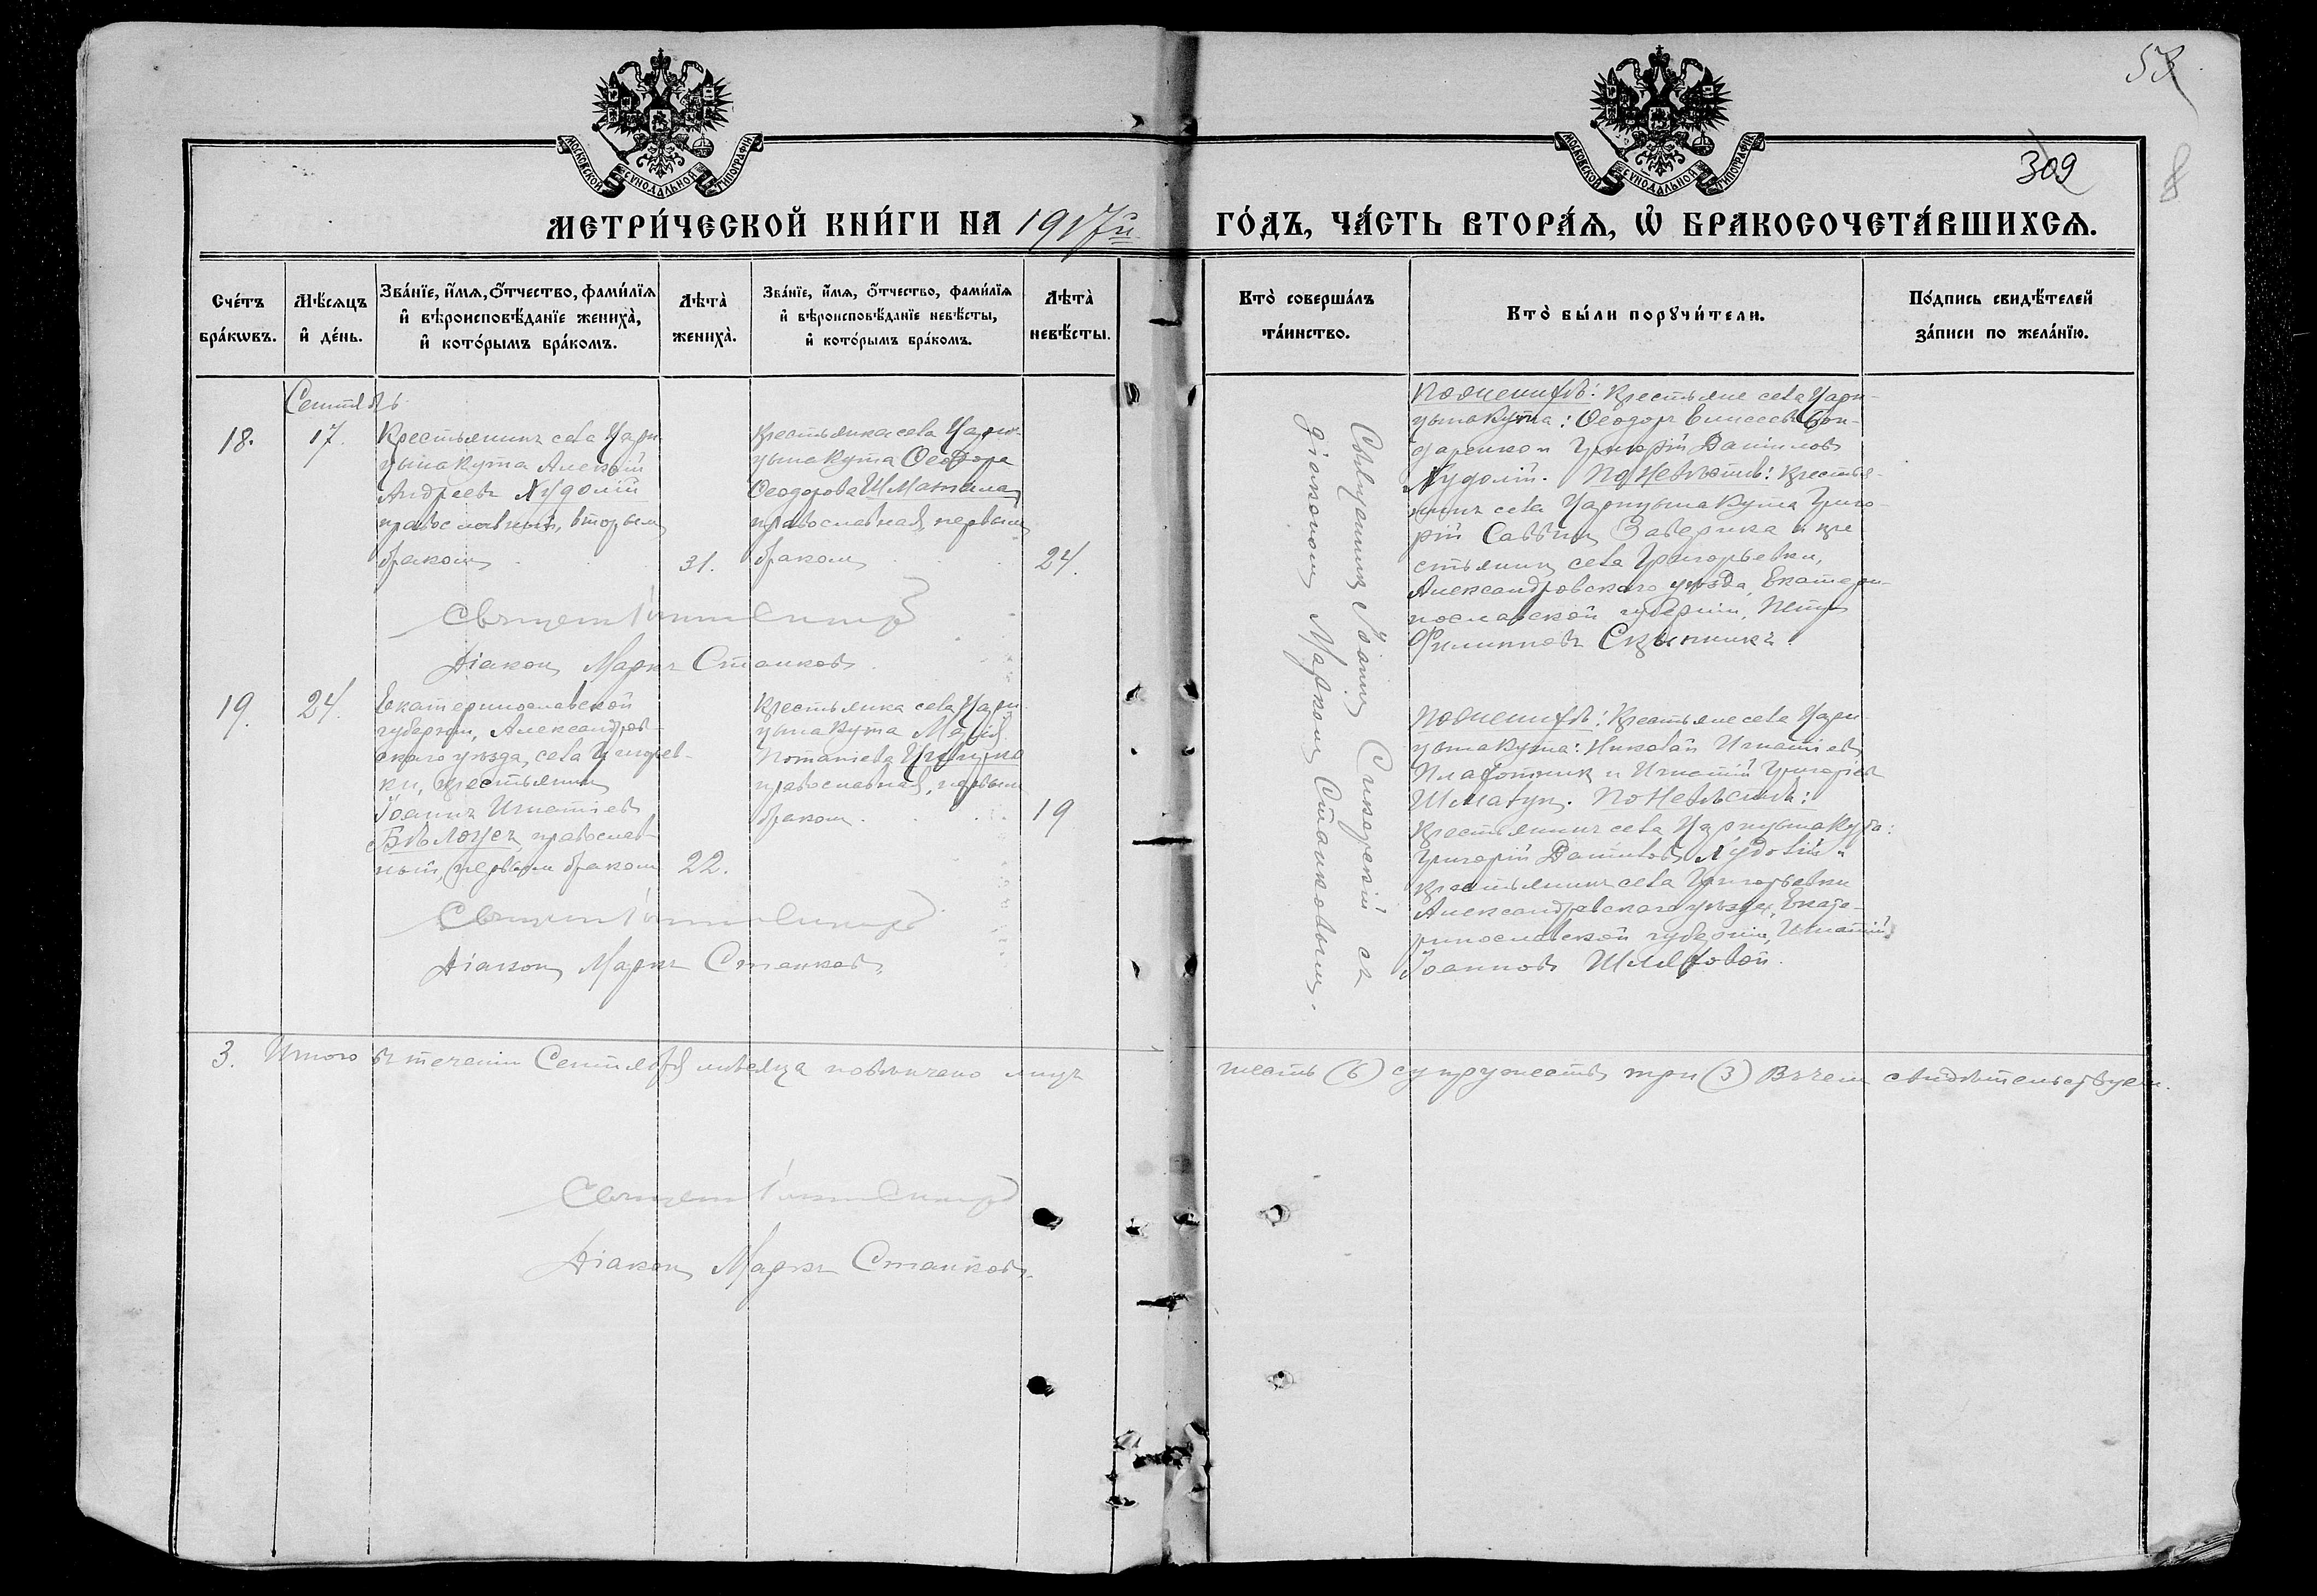 53
309
8
МОСКОВСКОЙ СѴНОДАЛЬНОЙ ТИПОГРАФІИ
МОСКОВСКОЙ СѴНОДАЛЬНОЙ ТИПОГРАФІИ
МЕТРИ́ЧЕСКОЙ КНИ́ГИ НА 1917й
ГО́ДЪ, ЧА́СТЬ ВТОРА́Я, Ѡ҆ БРАКОСОЧЕТА́ВШИХСЯ.
Сче́тъ бра́кѡвъ.
Мѣ́сяцъ и҆ де́нь.
Зва́нїе, и҆́мя, ѻ҆́тчество, фами́лїя и҆ вѣроисповѣ́данїе женихà, и҆ кото́рымъ бра́комъ.
Лѣтà женихà.
Зва́нїе, и҆́мя, ѻ҆́тчество, фами́лїя и҆ вѣроисповѣ́данїе невѣ́сты, и҆ кото́рымъ бра́комъ.
Лѣтà невѣ́сты.
Ктò соверша́лъ та́инство.
Ктò бы́ли порꙋчи́тели.
По́дпись свидѣ́телей за́писи по жела́нїю.
Сентябрь
18.
17.
Крестьянинъ села Цари
цына Кута Алексій
Андреевъ Худолій
православный, вторым
браком
31.
Крестьянка села Цари-
цына Кута Ѳеодора
Ѳеодорова Шматкова
православная, первым
браком
24.
Діакон Маркъ Станков.
Священник Іоанн Сикорскій съ
діаконом Марком Станковым.
По женихѣ: Крестьяне села Цари-
цына Кута: Ѳеодоръ Елисеевъ Бон-
даренко и Григорій Даниловъ
Худолій. По невѣстѣ: Крестья-
нинъ села Царицына Кута Григо-
рій Саввин Заверика и кре
стьянин села Григорьевки,
Александровскаго уѣзда, Екатери-
нославской губерніи, Петр
Филипповъ Скрынникъ.
19.
24.
Екатеринославской
губерніи, Александров-
скаго уѣзда, села Григорьев-
ки, крестьянин
Іоаннъ Игнатіев
Бѣлоусъ, православ-
ный, первым браком
22.
Крестьянка села Цари
цына Кута Марія
Потапіева
православная, первым
браком
19
Діакон Маркъ Станков.
По женихѣ: Крестьяне села Цари
цына Кута: Николай Игнатіев
и Игнатій Григоріев
Шматун. По невѣстѣ:
Крестьянинъ села Царицына Кута:
Григорій Данилов Худолій и
крестьянинъ села Григорьевки
Александровскаго уѣзда, Екате-
ринославской губерніи, Игнатій
Іоаннов
3. Итого въ теченіи Сентября мѣсяца повѣнчано лицъ
шесть (6) супружеств три (3) Въ чем свидѣтельствуем.
Діакон Маркъ Станков.